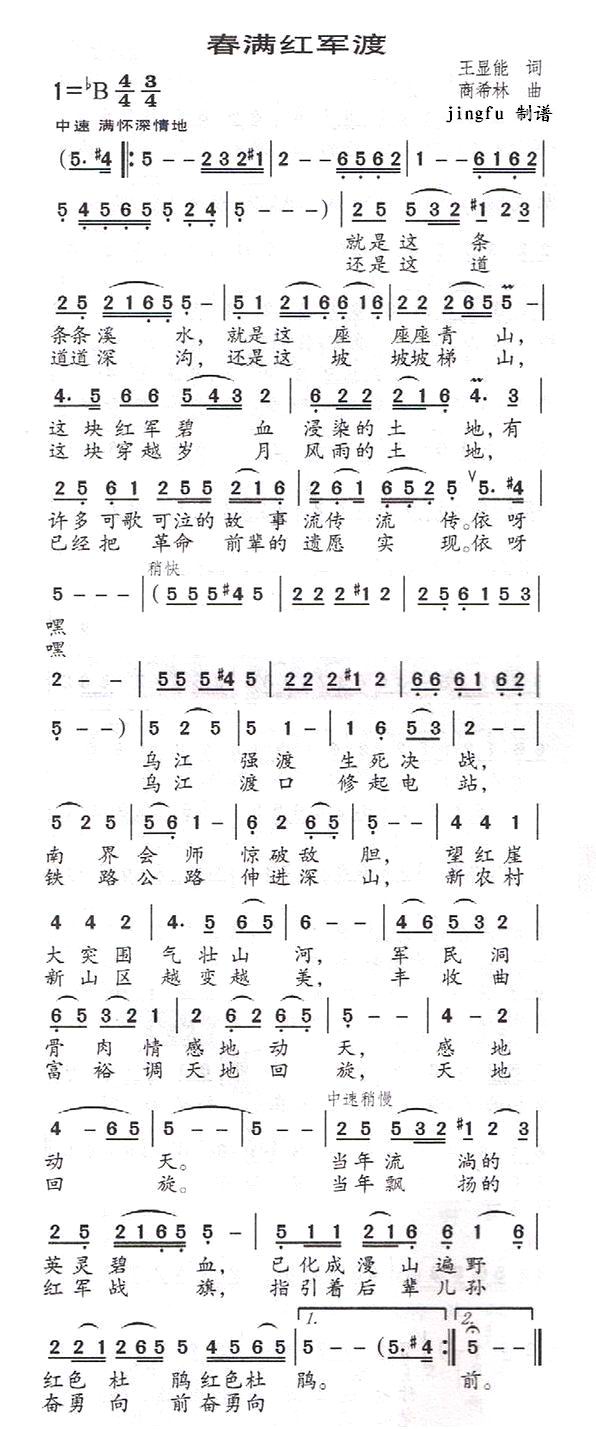 春满红军渡
1=♭B 4/4 3/4
王显能 词
商希林 曲
jingfu 制谱
中速 满怀深情地
(5. #4 |: 5 - - 2 3 2 #1 | 2 - - 6 5 6 2 | 1 - - 6 1 6 2 |
5 4 5 6 5 5 2 4 | 5 - - - ) | 2 5 5 3 2 #1 2 3 |
就是这 条
还是这 道
2 5 2 1 6 5 5 - | 5 1 2 1 6 6 1 6 | 2 2 2 6 5 5 - |
条条溪 水，就是这 座 座座青 山，
道道深 沟，还是这 坡 坡坡梯 山，
4. 5 6 6 5 4 3 2 | 6 2 2 2 1 6 4. 3 |
这块红军碧 血 浸染的土 地，有
这块穿越岁 月 风雨的土 地，
2 5 6 1 2 5 5 2 1 6 | 2 6 1 6 5 2 5 ∨ 5. #4 |
许多可歌可泣的故 事 流传 流 传。依呀
已经把 革命 前辈的 遗愿 实 现。依呀
稍快
5 - - - | ( 5 5 5 #4 5 | 2 2 2 #1 2 | 2 5 6 1 5 3 |
嘿
嘿
2 - - | 5 5 5 #4 5 | 2 2 2 #1 2 | 6 6 6 1 6 2 |
5 - - ) | 5 2 5 | 5 1 - | 1 6 5 3 | 2 - - |
乌江 强渡 生死决 战，
乌江 渡口 修起电 站，
5 2 5 | 5 6 1 - | 6 2 6 5 | 5 - - | 4 4 1 |
南 界 会 师 惊破敌 胆， 望红崖
铁 路 公 路 伸进深 山， 新农村
4 4 2 | 4. 5 6 5 | 6 - - | 4 6 5 3 2 |
大突围 气壮山 河， 军 民 洞
新山区 越变越 美， 丰 收 曲
6 5 3 2 1 | 2 6 2 6 5 | 5 - - | 4 - 2 |
骨 肉 情 感 地 动 天， 感 地
富 裕 调 天 地 回 旋， 天 地
中速稍慢
4 - 6 5 | 5 - - | 5 - - | 2 5 5 3 2 #1 2 3 |
动 天。 当年流 淌的
回 旋。 当年飘 扬的
2 5 2 1 6 5 5 - | 5 1 1 2 1 6 6 1 6 |
英灵碧 血， 已化成漫山遍野
红军战 旗， 指引着后辈儿孙
1. 2.
2 2 1 2 6 5 5 4 5 6 5 | 5 - - (5. #4 :| 5 - - ‖
红色 杜 鹃 红色杜 鹃。 前。
奋勇向 前 奋勇向